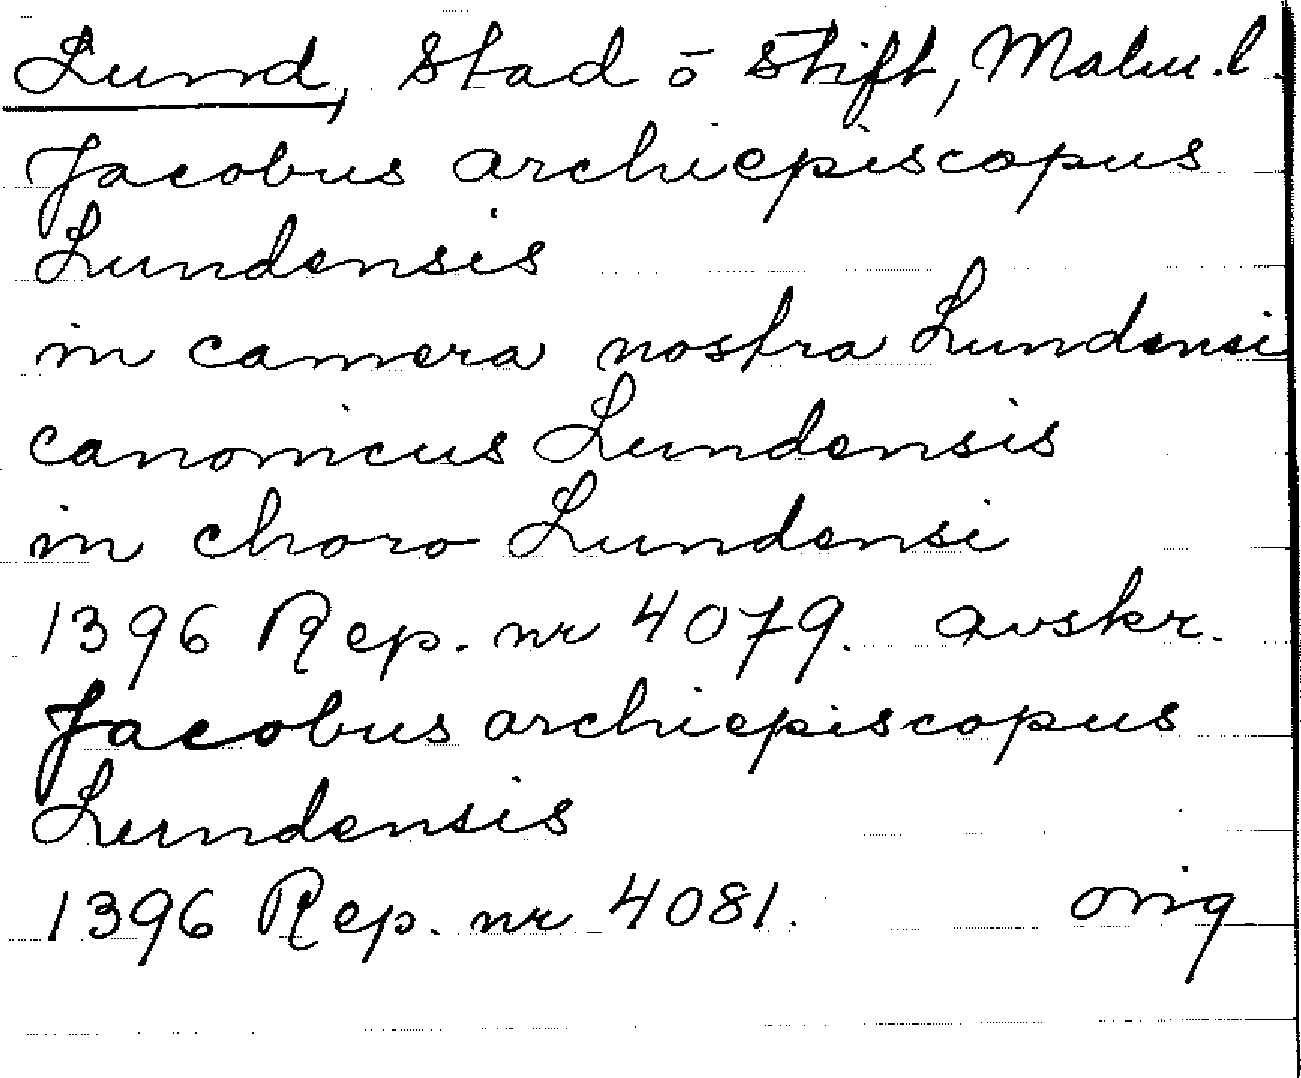 Lund, Stad ō Stift, Malm.l.
Jacobus archiepiscopus
Lundensis
in camera nostra Lundensi
canonicus Lundensis
in choro Lundensi
1396 Rep. nr 4079. avskr.
Jacobus archiepiscopus
Lundensis
1396 Rep. nr 4081. orig